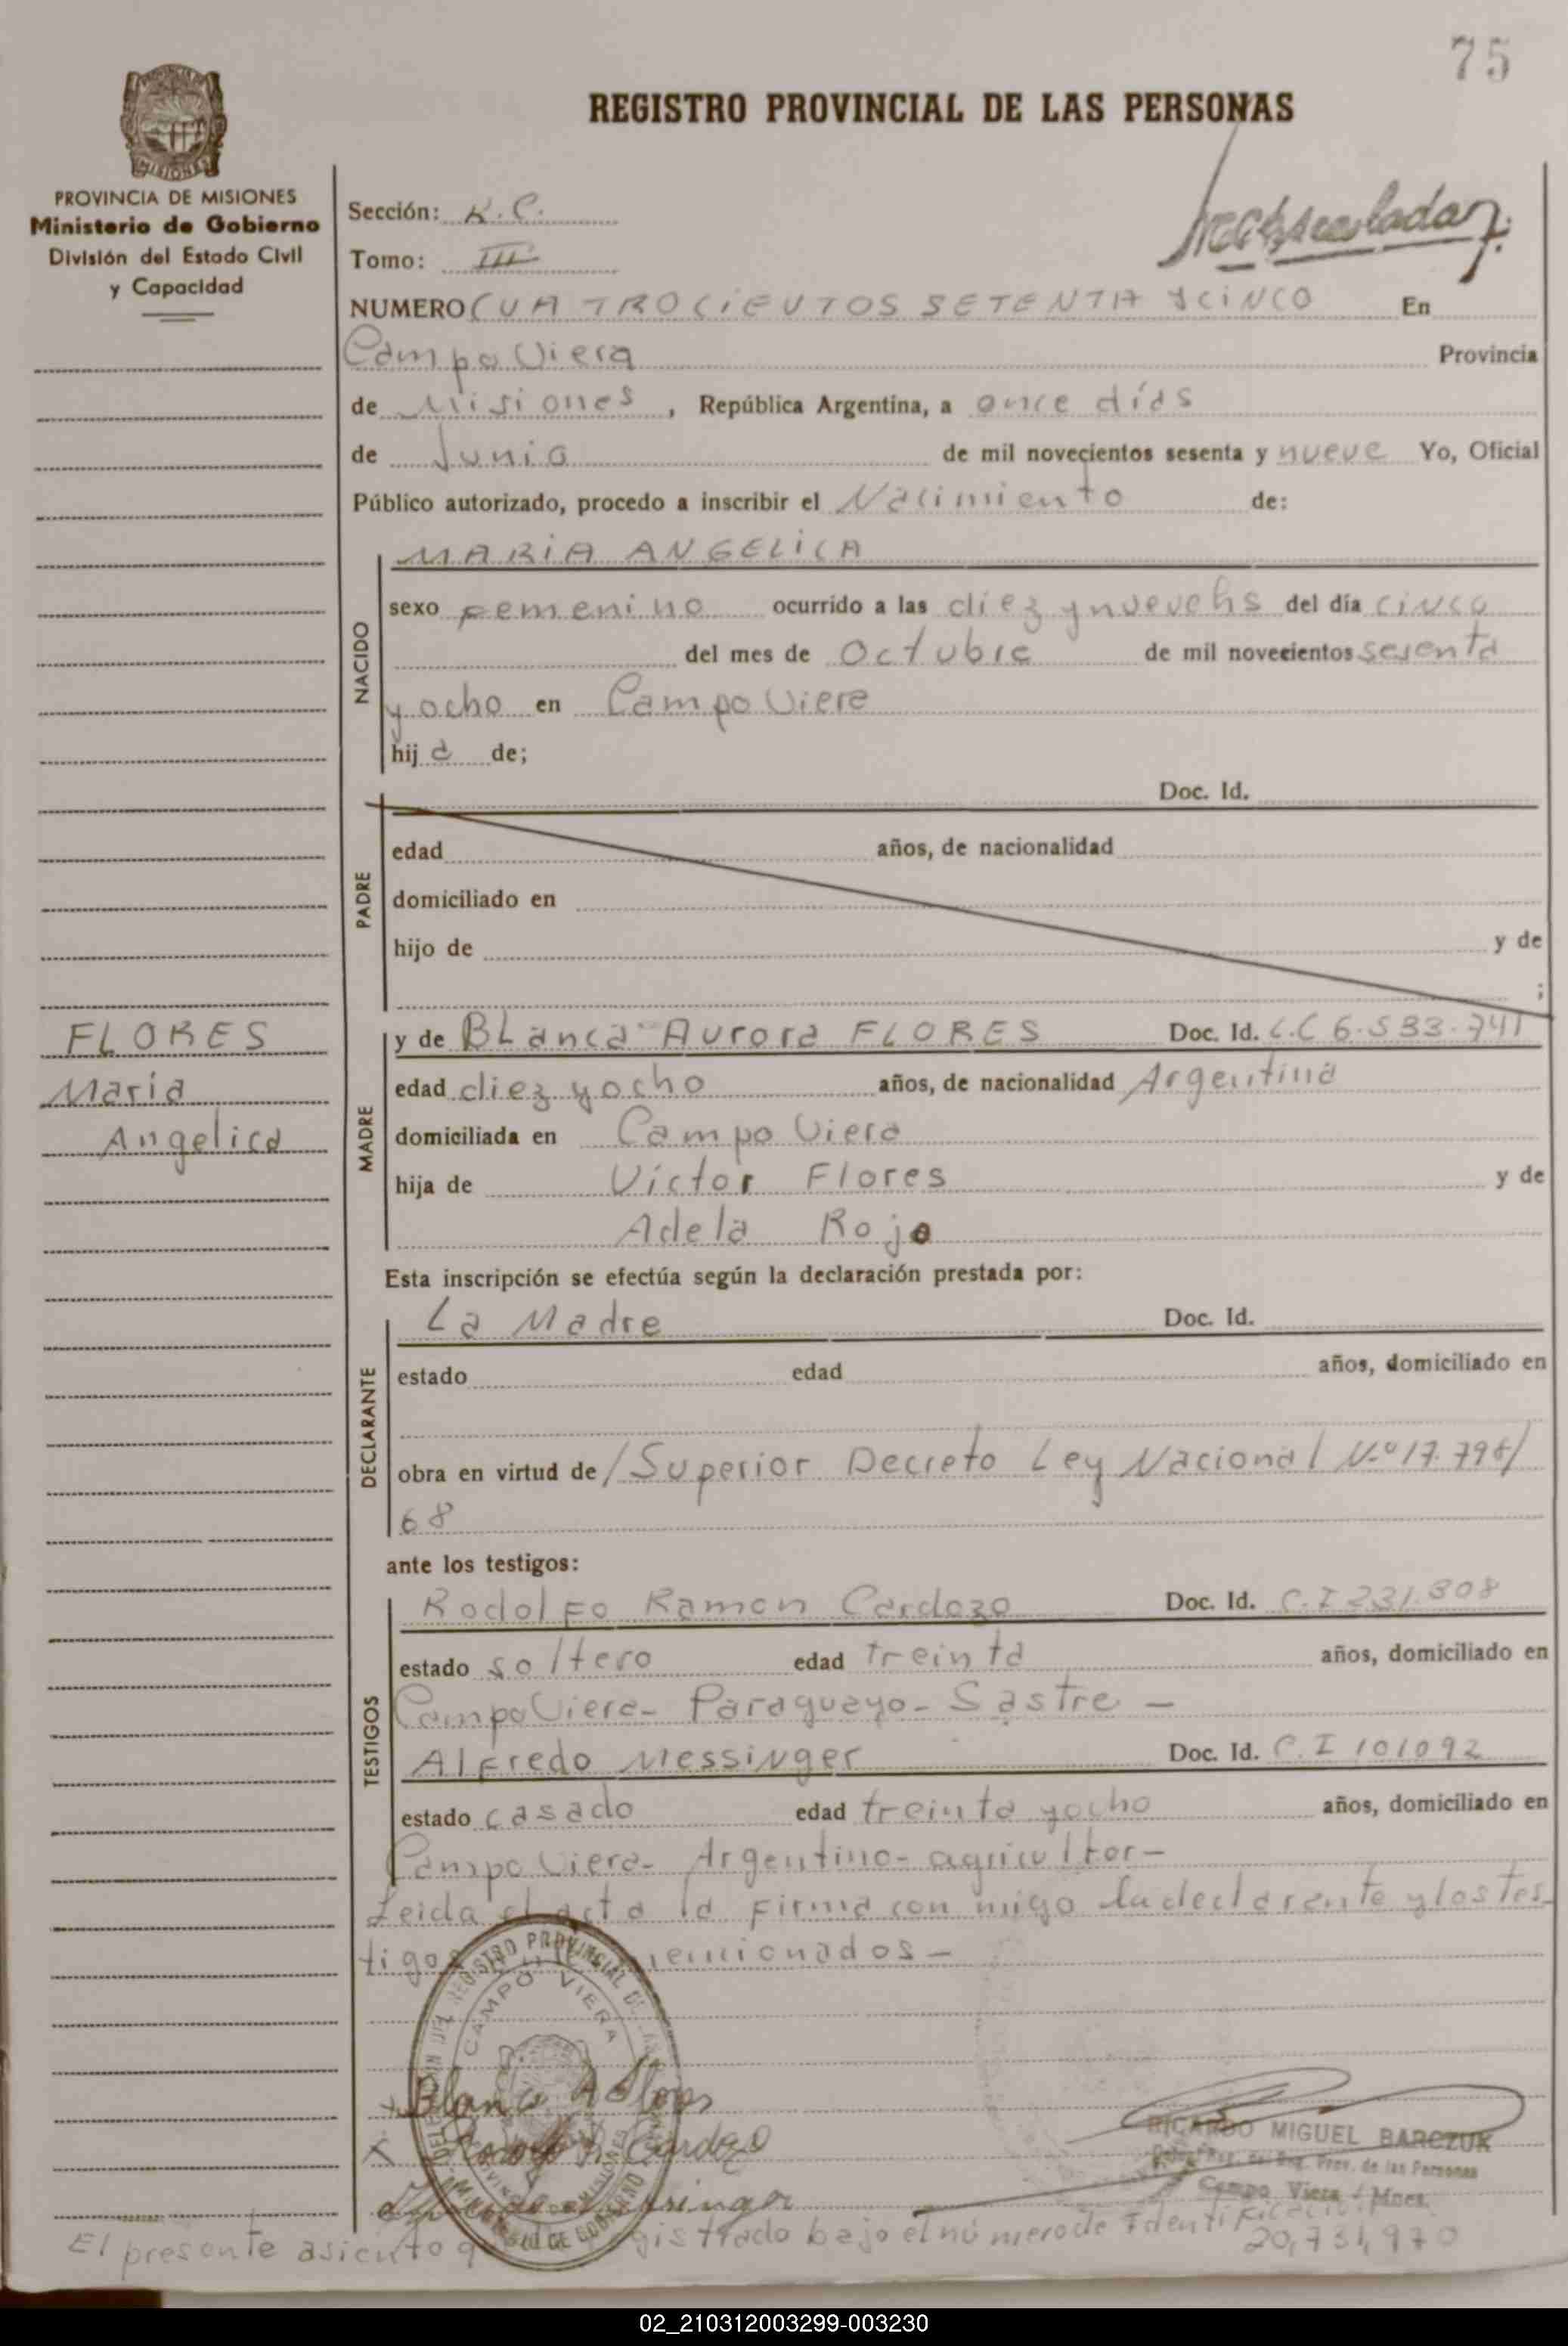 75
REGISTRO PROVINCIAL DE LAS PERSONAS
MISIONES
PROVINCIA DE MISIONES
Ministerio de Gobierno
División del Estado Civil
y Capacidad
Sección: R.C.
Tomo: III
NUMERO CUATROCIENTOS SETENTA Y CINCO En
Campo Viera Provincia
de Misiones, República Argentina, a once días
de Junio de mil novecientos sesenta y nueve Yo, Oficial
Público autorizado, procedo a inscribir el Nacimiento de:
NACIDO
MARIA ANGELICA
sexo femenino ocurrido a las diez y nueve hs del día cinco
del mes de Octubre de mil novecientos sesenta
y ocho en Campo Viera
hija de;
PADRE
Doc. Id.
edad años, de nacionalidad
domiciliado en
hijo de y de
;
FLORES
Maria
Angelica
MADRE
y de Blanca Aurora FLORES Doc. Id. L.C 6.533.741
edad diez y ocho años, de nacionalidad Argentina
domiciliada en Campo Viera
hija de Victor Flores y de
Adela Rojo
Esta inscripción se efectúa según la declaración prestada por:
DECLARANTE
La Madre Doc. Id.
estado edad años, domiciliado en
obra en virtud de / Superior Decreto Ley Nacional N.º 17.796/
68
ante los testigos:
TESTIGOS
Rodolfo Ramon Cardozo Doc. Id. C.I 231.808
estado soltero edad treinta años, domiciliado en
Campo Viera- Paraguayo- Sastre -
Alfredo Messinger Doc. Id. C.I 101092
estado casado edad treinta y ocho años, domiciliado en
Campo Viera- Argentino- agricultor-
Leida el acta la firma con migo la declarante y los tes-
tigos mencionados-
REGISTRO PROVINCIAL DE
CAMPO VIERA
MINISTERIO DE GOBIERNO
Blanca A Flores
X Rodolfo R. Cardozo
Alfredo Messinger
RICARDO MIGUEL BARCZUK
Reg. Prov. de las Personas
Campo Viera - Mnes.
El presente asiento registrado bajo el número de Identificación
20,731,970
02_210312003299-003230